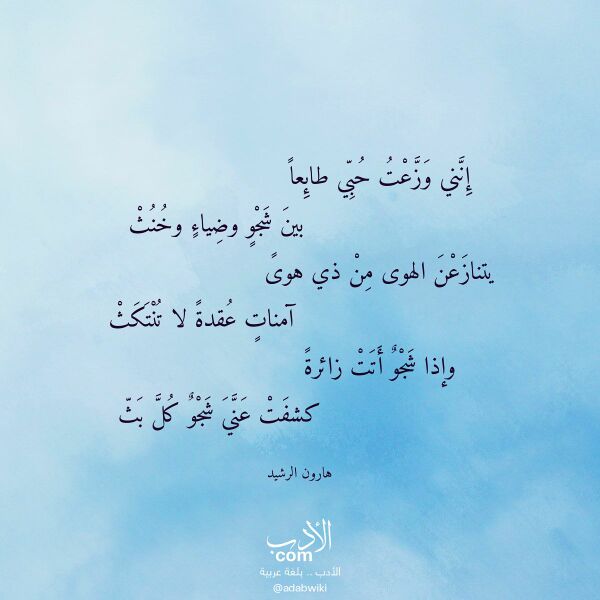 إِنَّني وَزَّعْتُ حُبِّي طائِعاً
بينَ شَجْوٍ وضِياءٍ وخُنُثْ
يتنازَعْنَ الهوى مِنْ ذي هوىً
آمناتٍ عُقدةً لا تُنْتَكَثْ
وإذا شَجْوٌ أَتَتْ زائرةً
كشفَتْ عَنَّيَ شَجْوٌ كُلَّ بَثّ
هارون الرشيد
الأدب
com
الأدب .. بلغة عربية
@adabwiki